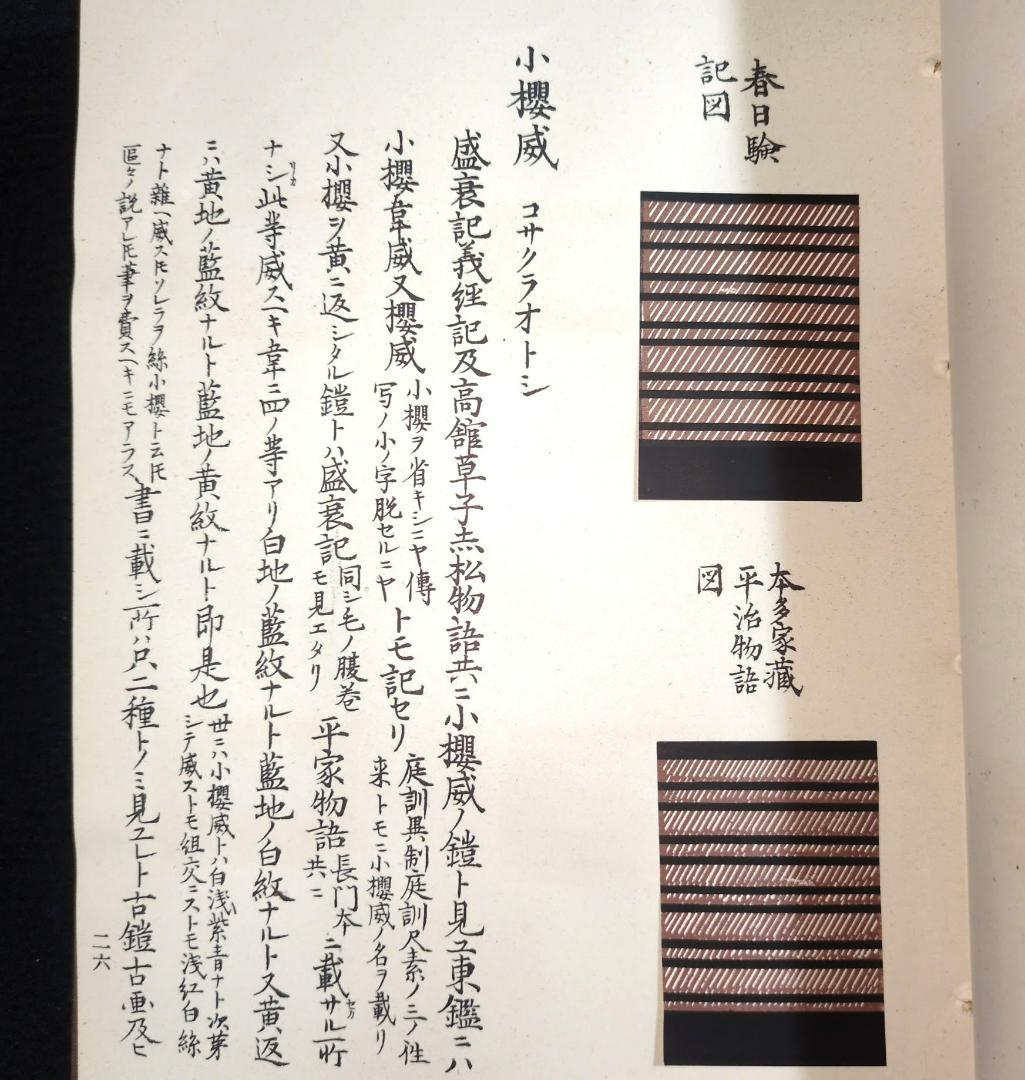 春日驗
記図
本多家藏
平治物語
図
小櫻威 コサクラオトシ
盛衰記義経記及高舘草子赤松物語共ニ小櫻威ノ鎧ト見ユ東鑑ニハ
小櫻韋威又櫻威
小櫻ヲ省キシニヤ傳
写ノ小ノ字脱セルニヤ
トモ記セリ
庭訓異制庭訓尺素ノ三ノ徃
来トモニ小櫻威ノ名ヲ載リ
又小櫻ヲ黄ニ返シタル鎧トハ盛衰記
同シ毛ノ腹巻
モ見エタリ
平家物語
長門本
共ニ
ニ載サル所
ナシ此䓁威スヘキ韋ニ四ノ䓁アリ白地ノ藍紋ナルト藍地ノ白紋ナルト又黄返
ニハ黄地ノ藍紋ナルト藍地ノ黄紋ナルト即是也
世ニハ小櫻威トハ白浅紫青ナト次第
シテ威ストモ組交ニストモ浅紅白絲
ナト雑ヘ威ストモソレラヲ絲小櫻ト云トモ
區々ノ説アレトモ筆ヲ費スヘキニモアラス
書ニ載シ所ハ只二種トノミ見ユレト古鎧古画及ヒ
二六